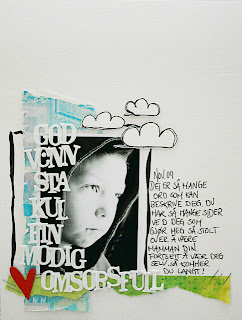 GOD
VENN
STA
KUL
FIN
MODIG
OMSORSFULL
NOV. 09
DET ER SÅ MANGE
ORD SOM KAN
BESKRIVE DEG. DU
HAR SÅ MANGE SIDER
VED DEG SOM
GJØR MEG SÅ STOLT
OVER Å VÆRE
MAMMAN DIN.
FORTSETT Å VÆRE DEG
SELV, SÅ KOMMER
DU LANGT!